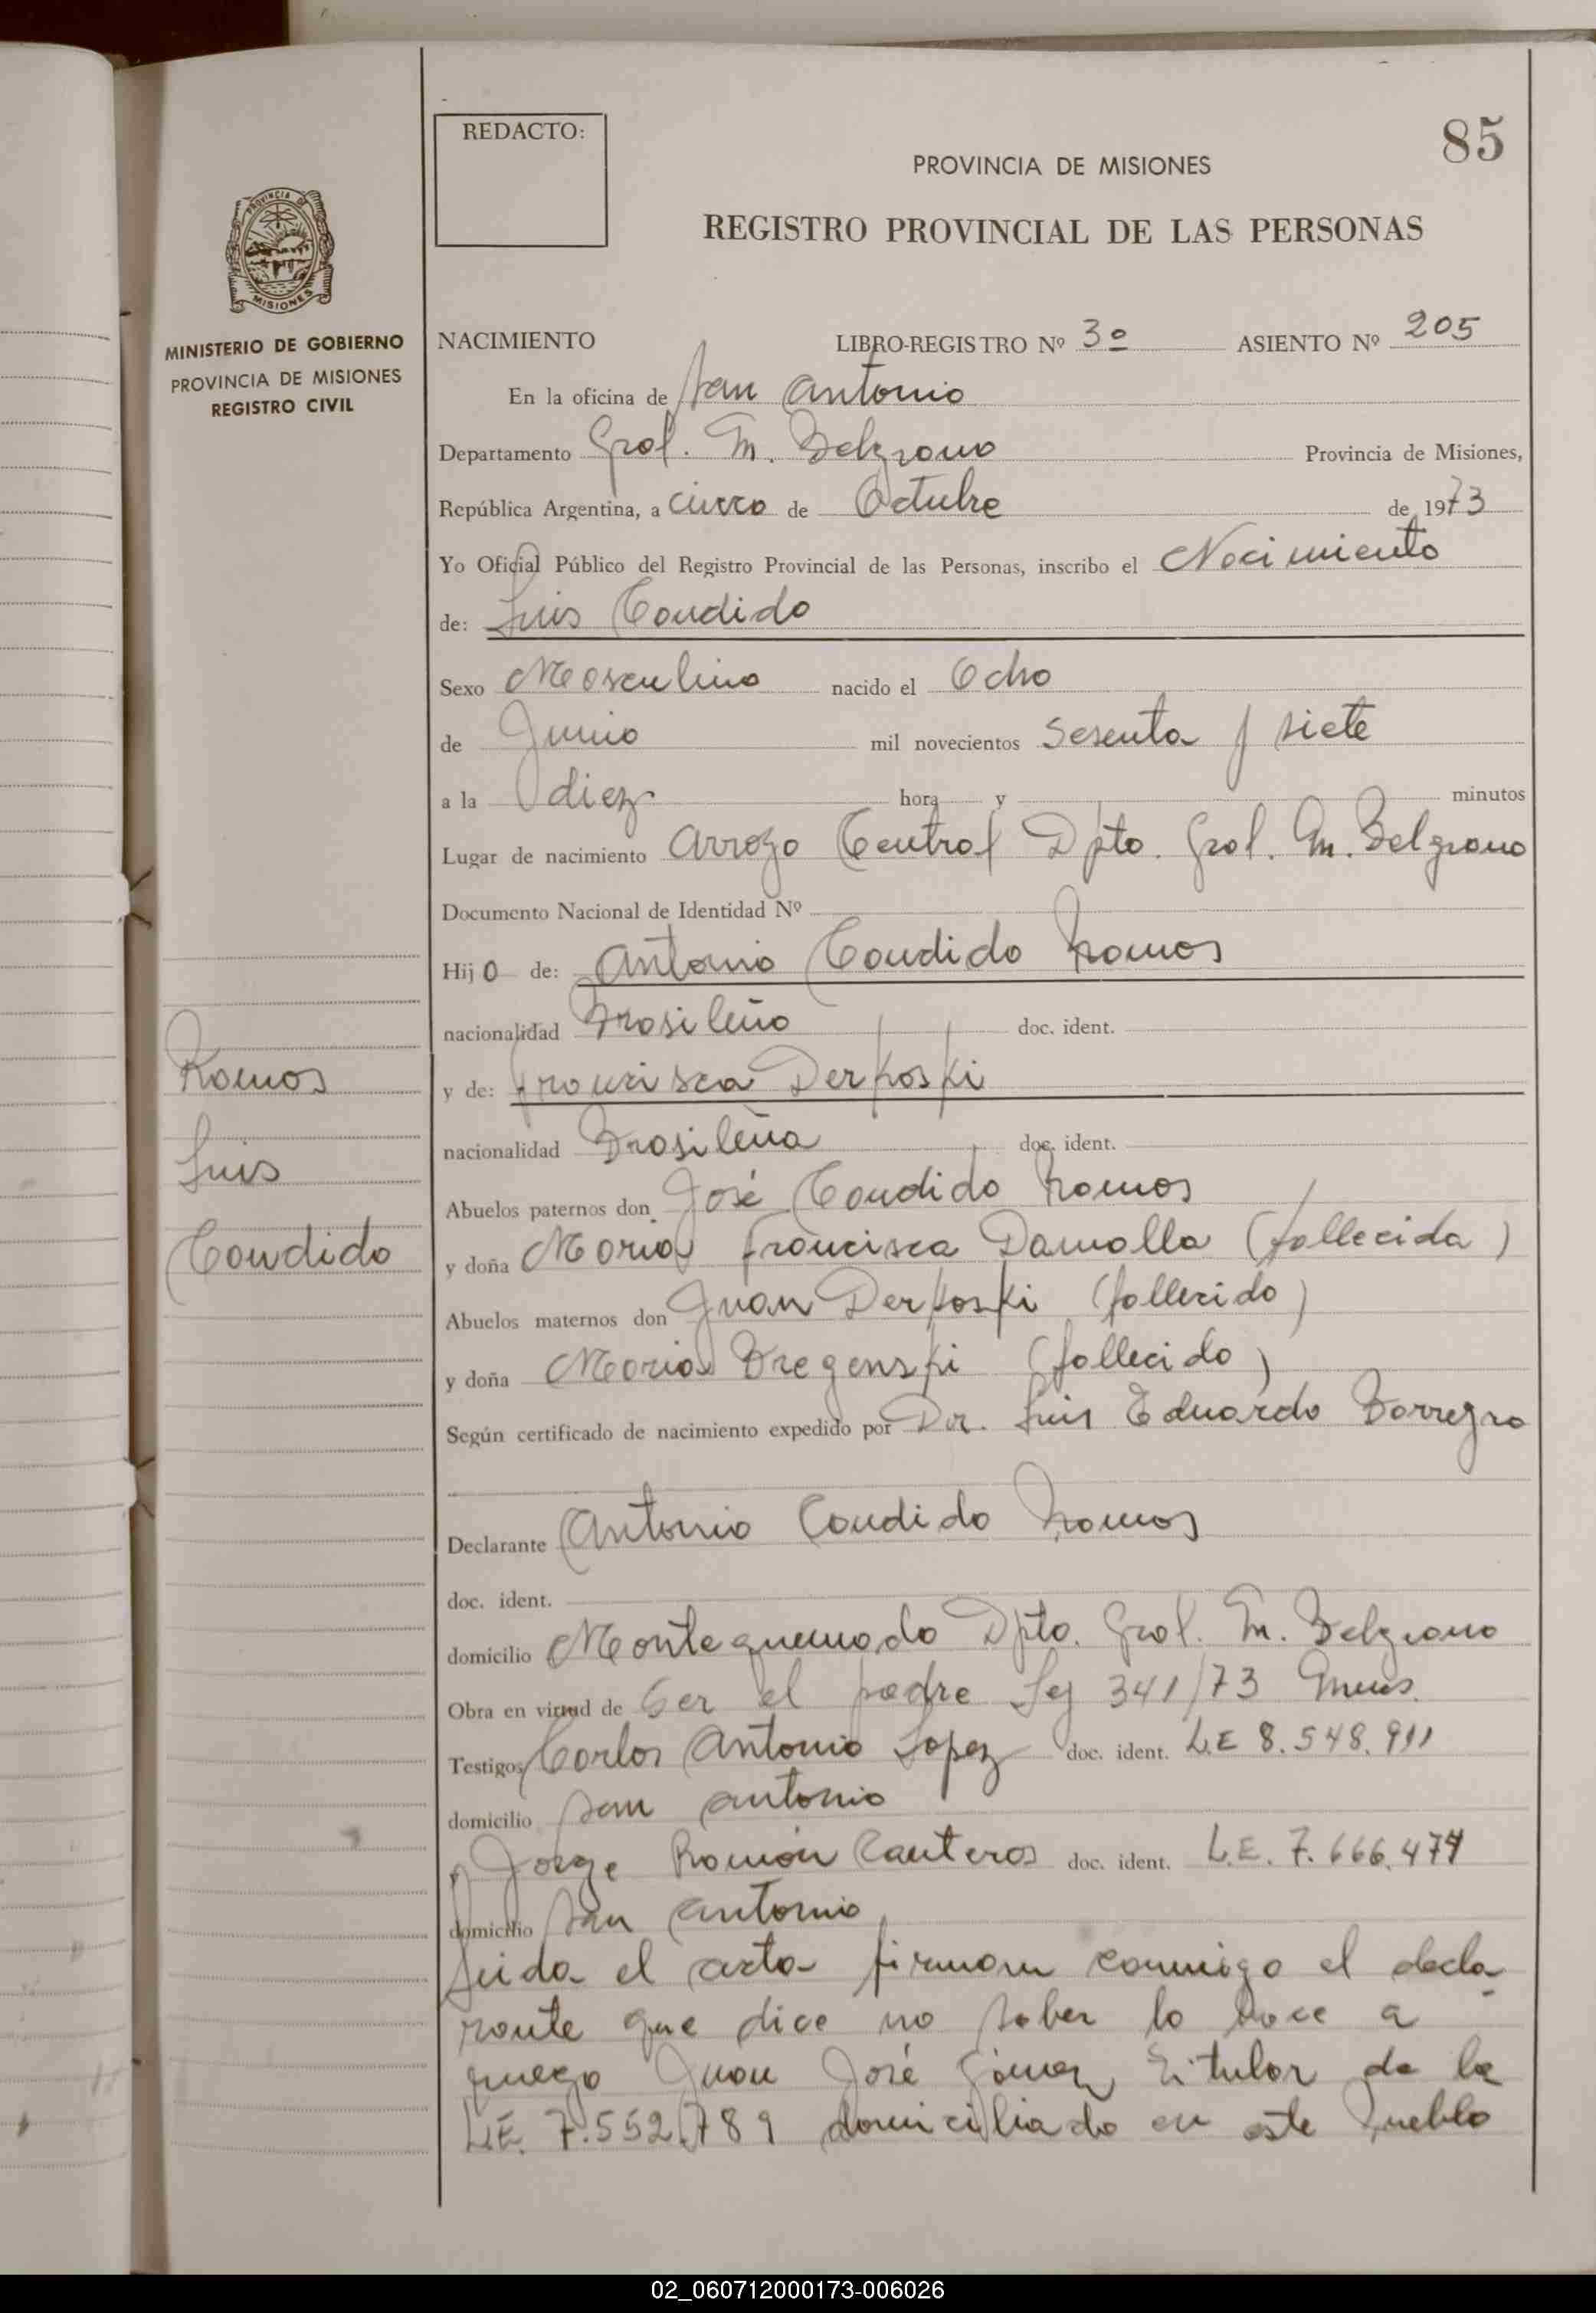 REDACTO:
85
PROVINCIA DE MISIONES
REGISTRO PROVINCIAL DE LAS PERSONAS
PROVINCIA DE
MISIONES
MINISTERIO DE GOBIERNO
PROVINCIA DE MISIONES
REGISTRO CIVIL
NACIMIENTO LIBRO-REGISTRO Nº 3º ASIENTO Nº 205
En la oficina de San Antonio
Departamento Gral. M. Belgrano Provincia de Misiones,
República Argentina, a cinco de Octubre de 1973
Yo Oficial Público del Registro Provincial de las Personas, inscribo el Nacimiento
de: Luis Candido
Sexo Masculino nacido el Ocho
de Junio mil novecientos sesenta y siete
a la diez hora y minutos
Lugar de nacimiento Arroyo Central Dpto. Gral. M. Belgrano
Documento Nacional de Identidad Nº
Hijo de: Antonio Candido Ramos
nacionalidad Brasileño doc. ident.
y de: Francisca Derkoski
nacionalidad Brasileña doc. ident.
Abuelos paternos don José Candido Ramos
y doña Maria Francisca Damalla (fallecida)
Abuelos maternos don Juan Derkoski (fallecido)
y doña Maria Bregenski (fallecido)
Según certificado de nacimiento expedido por Dr. Luis Eduardo Borregro
Declarante Antonio Candido Ramos
doc. ident.
domicilio Montequemado Dpto. Gral. M. Belgrano
Obra en virtud de Ser el padre Ley 341/73
Testigos Carlos Antonio Lopez doc. ident. L.E 8.548.911
domicilio San Antonio
y Jorge Ramón Canteros doc. ident. L.E. 7.666.474
domicilio San Antonio
Leida el acta firman conmigo el decla-
rante que dice no saber lo hace a
ruego Juan José Gómez titular de la
L.E. 7.552.789 domiciliado en este Pueblo
Ramos
Luis
Candido
02_060712000173-006026